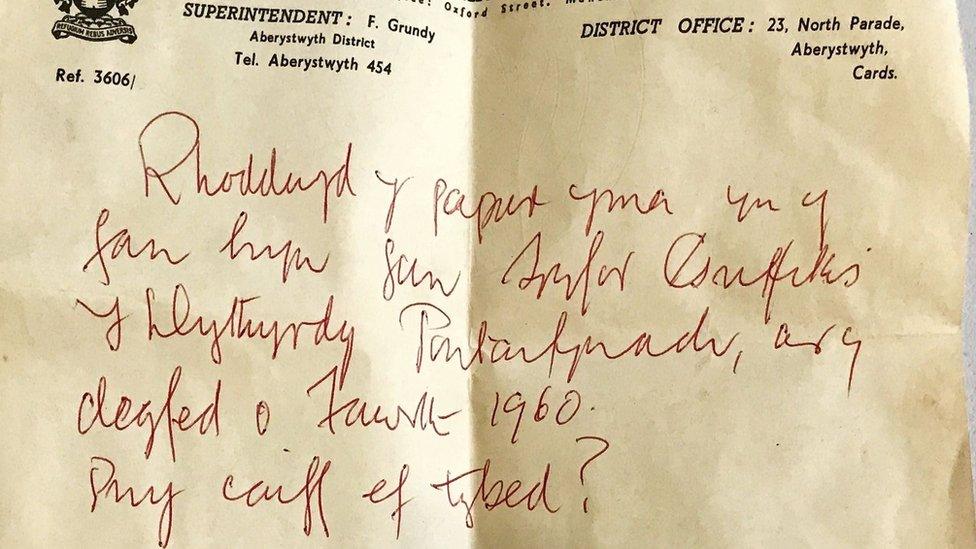 Oxford Street.
SUPERINTENDENT: F. Grundy
Aberystwyth District
Tel. Aberystwyth 454
DISTRICT OFFICE: 23, North Parade,
Aberystwyth,
Cards.
REFUGIUM REBUS ADVERSIS
Ref. 3606/
Rhoddwyd y papur yma yn y
fan hyn gan Ifor Griffiths
Y Llythyrdy Pontarfynach, ar y
degfed o Fawrth 1960.
Pwy caiff ef tybed?